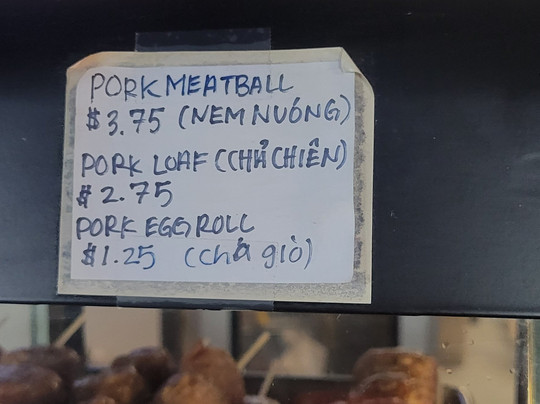 PORK MEATBALL
$3.75 (NEM NUÓNG)
PORK LOAF (CHẢ CHIÊN)
$2.75
PORK EGG ROLL
$1.25 (chả giò)